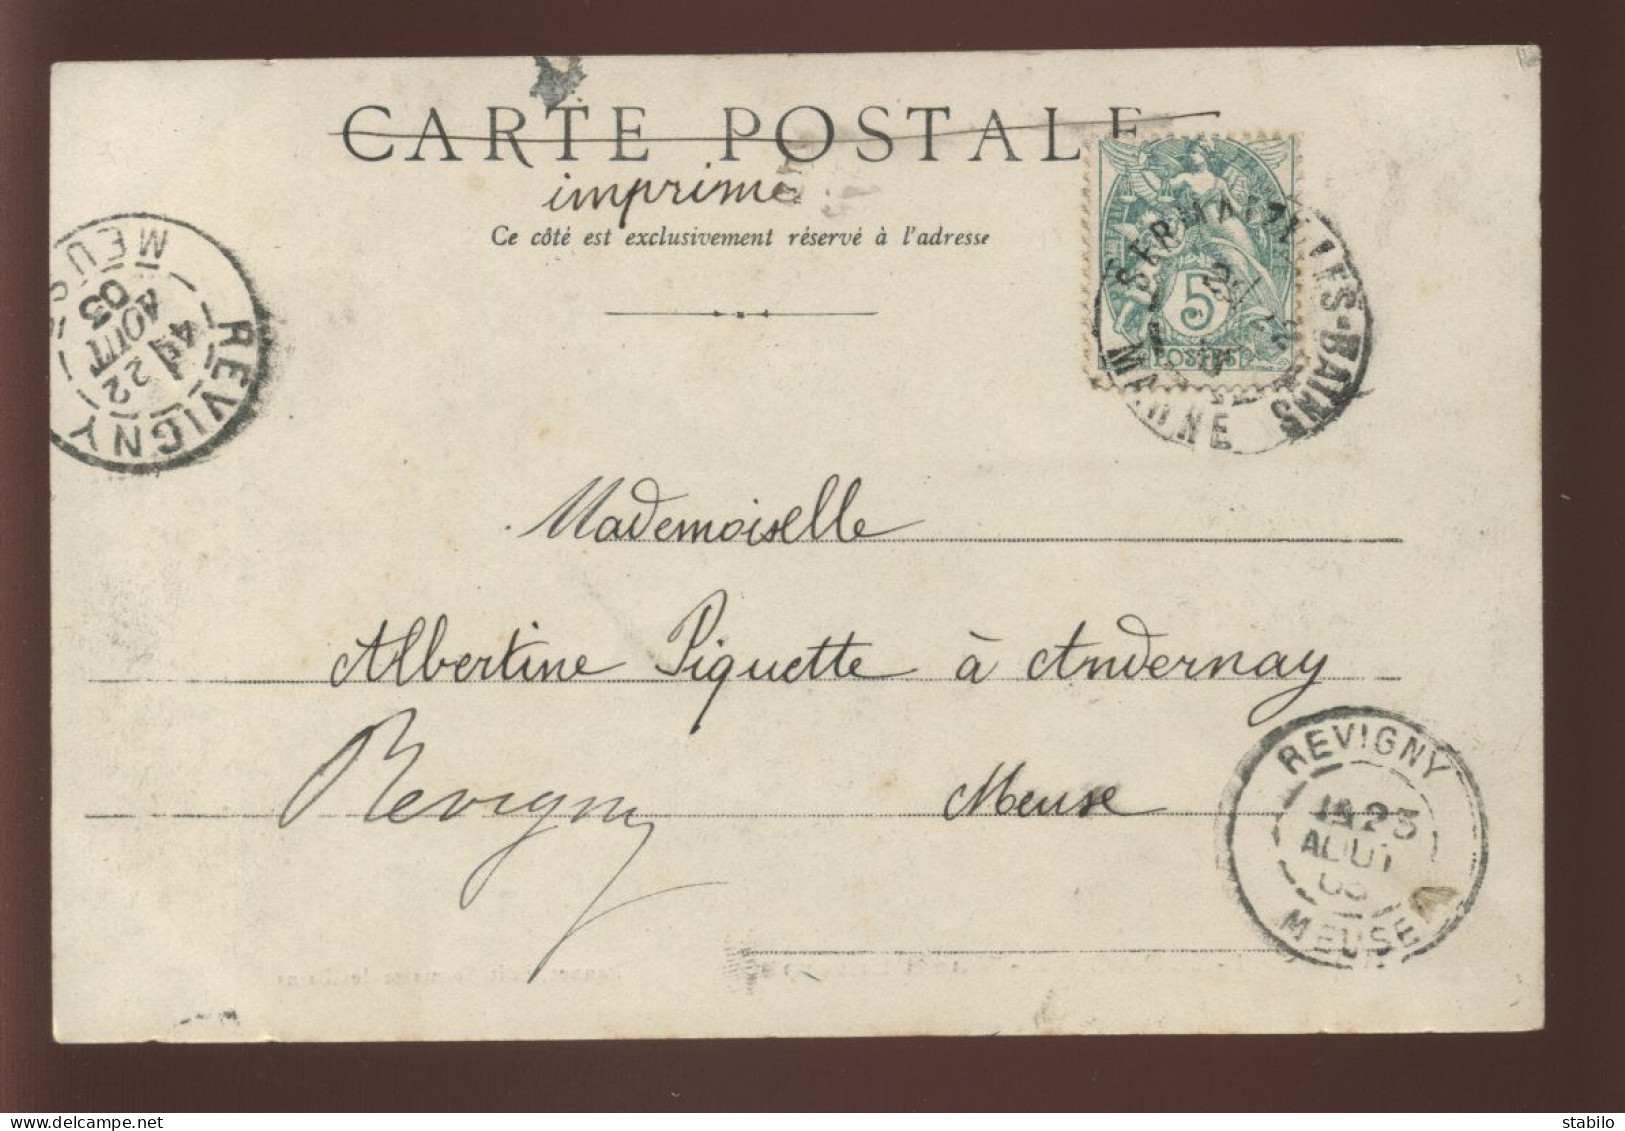 CARTE POSTALE
imprimé
Ce côté est exclusivement réservé à l'adresse
5
POSTES
SERMAIZE-LES-BAINS
MARNE
REVIGNY
22
AOUT
03
MEUSE
Mademoiselle
Albertine Piquette à Andernay
Revigny Meuse
REVIGNY
23
AOUT
03
MEUSE
stabilo